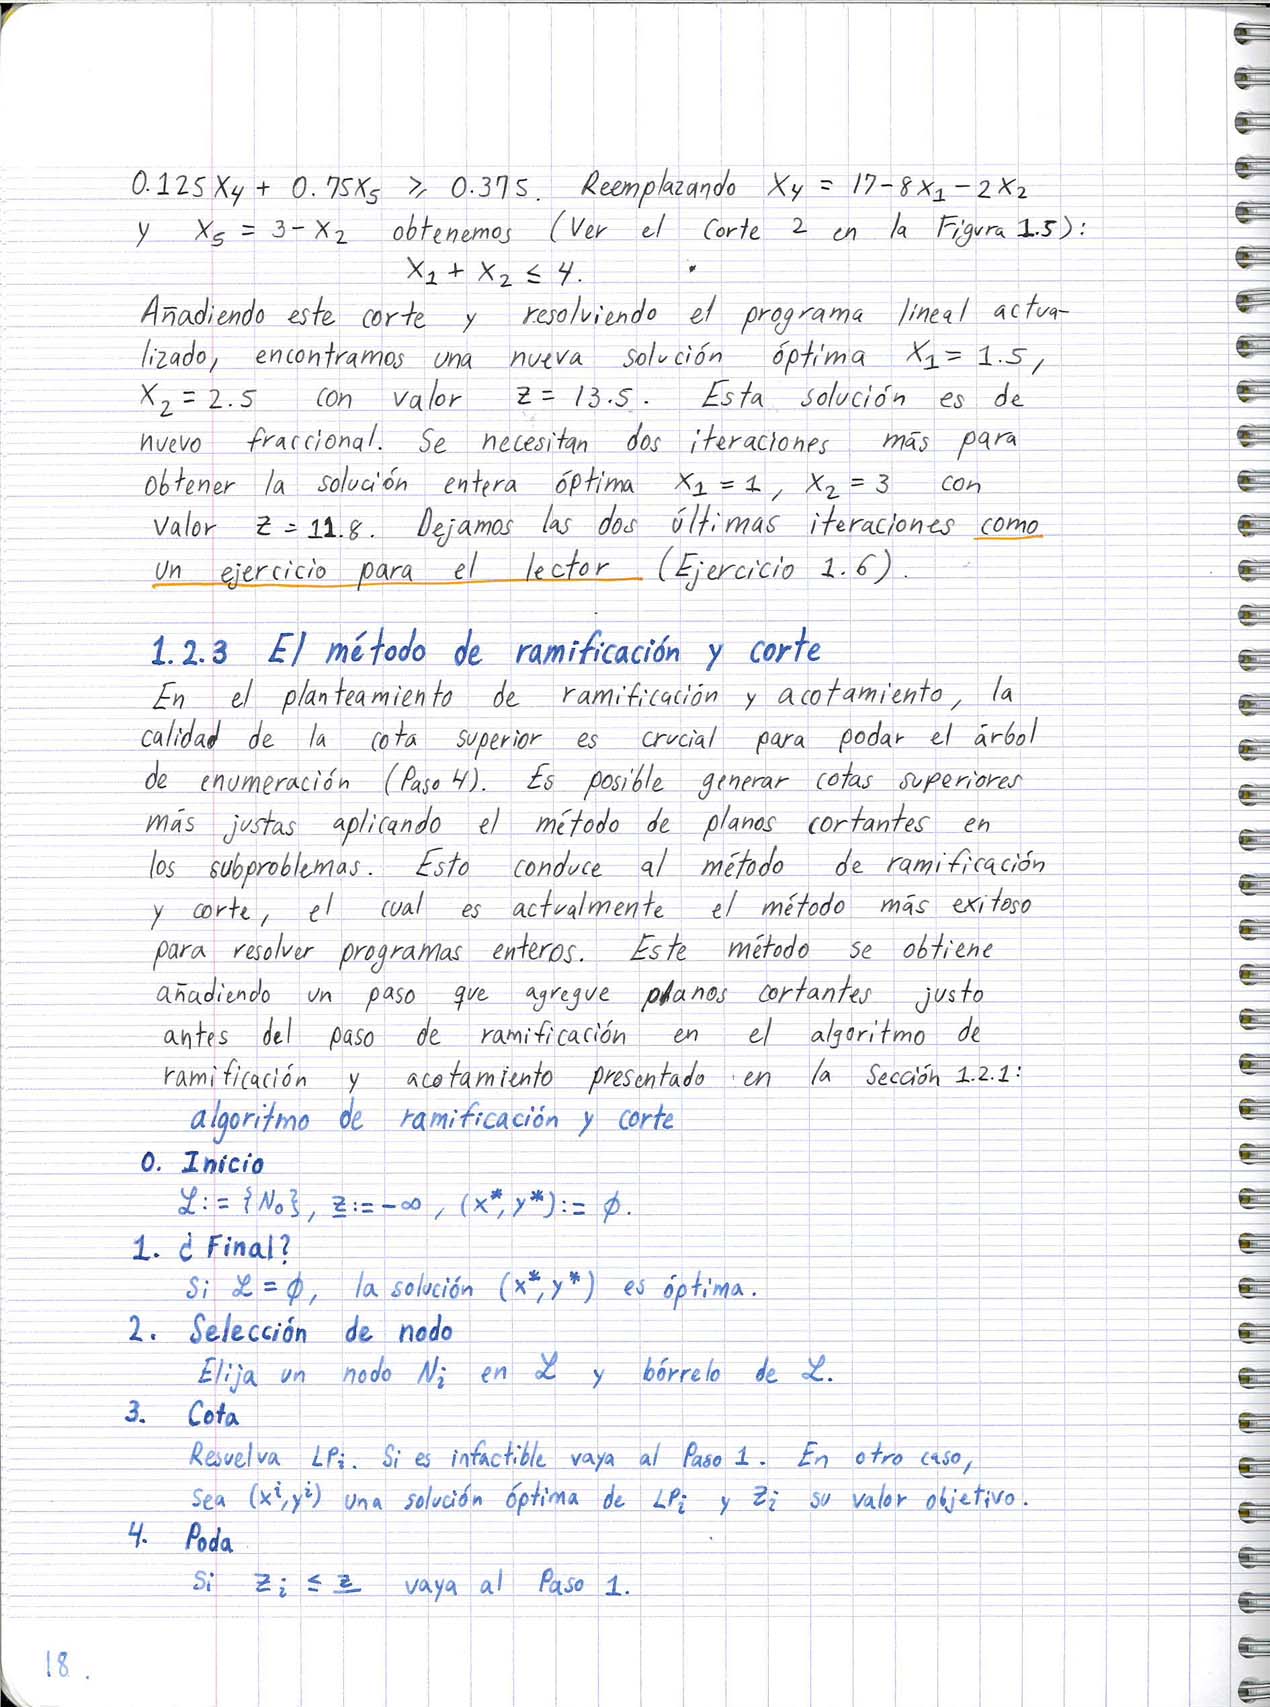 0.125 X₄ + 0.75X₅ ⩾ 0.375. Reemplazando X₄ = 17-8X₁-2X₂
y X₅ = 3-X₂ obtenemos (Ver el Corte 2 en la Figura 1.5):
X₁ + X₂ ≤ 4.
Añadiendo este corte y resolviendo el programa lineal actua-
lizado, encontramos una nueva solución óptima X₁ = 1.5,
X₂ = 2.5 con valor z = 13.5. Esta solución es de
nuevo fraccional. Se necesitan dos iteraciones más para
obtener la solución entera óptima X₁ = 1, X₂ = 3 con
valor z = 11.8. Dejamos las dos últimas iteraciones como
un ejercicio para el lector (Ejercicio 1.6).
1.2.3 El método de ramificación y corte
En el planteamiento de ramificación y acotamiento, la
calidad de la cota superior es crucial para podar el árbol
de enumeración (Paso 4). Es posible generar cotas superiores
más justas aplicando el método de planos cortantes en
los subproblemas. Esto conduce al método de ramificación
y corte, el cual es actualmente el método más exitoso
para resolver programas enteros. Este método se obtiene
añadiendo un paso que agregue planos cortantes justo
antes del paso de ramificación en el algoritmo de
ramificación y acotamiento presentado en la Sección 1.2.1:
algoritmo de ramificación y corte
0. Inicio
ℒ := {N₀}, z̲ := -∞, (x*, y*) := ∅.
1. ¿Final?
Si ℒ = ∅, la solución (x*, y*) es óptima.
2. Selección de nodo
Elija un nodo Nᵢ en ℒ y bórrelo de ℒ.
3. Cota
Resuelva LPᵢ. Si es infactible vaya al Paso 1. En otro caso,
sea (xⁱ, yⁱ) una solución óptima de LPᵢ y zᵢ su valor objetivo.
4. Poda
Si zᵢ ≤ z̲ vaya al Paso 1.
18.